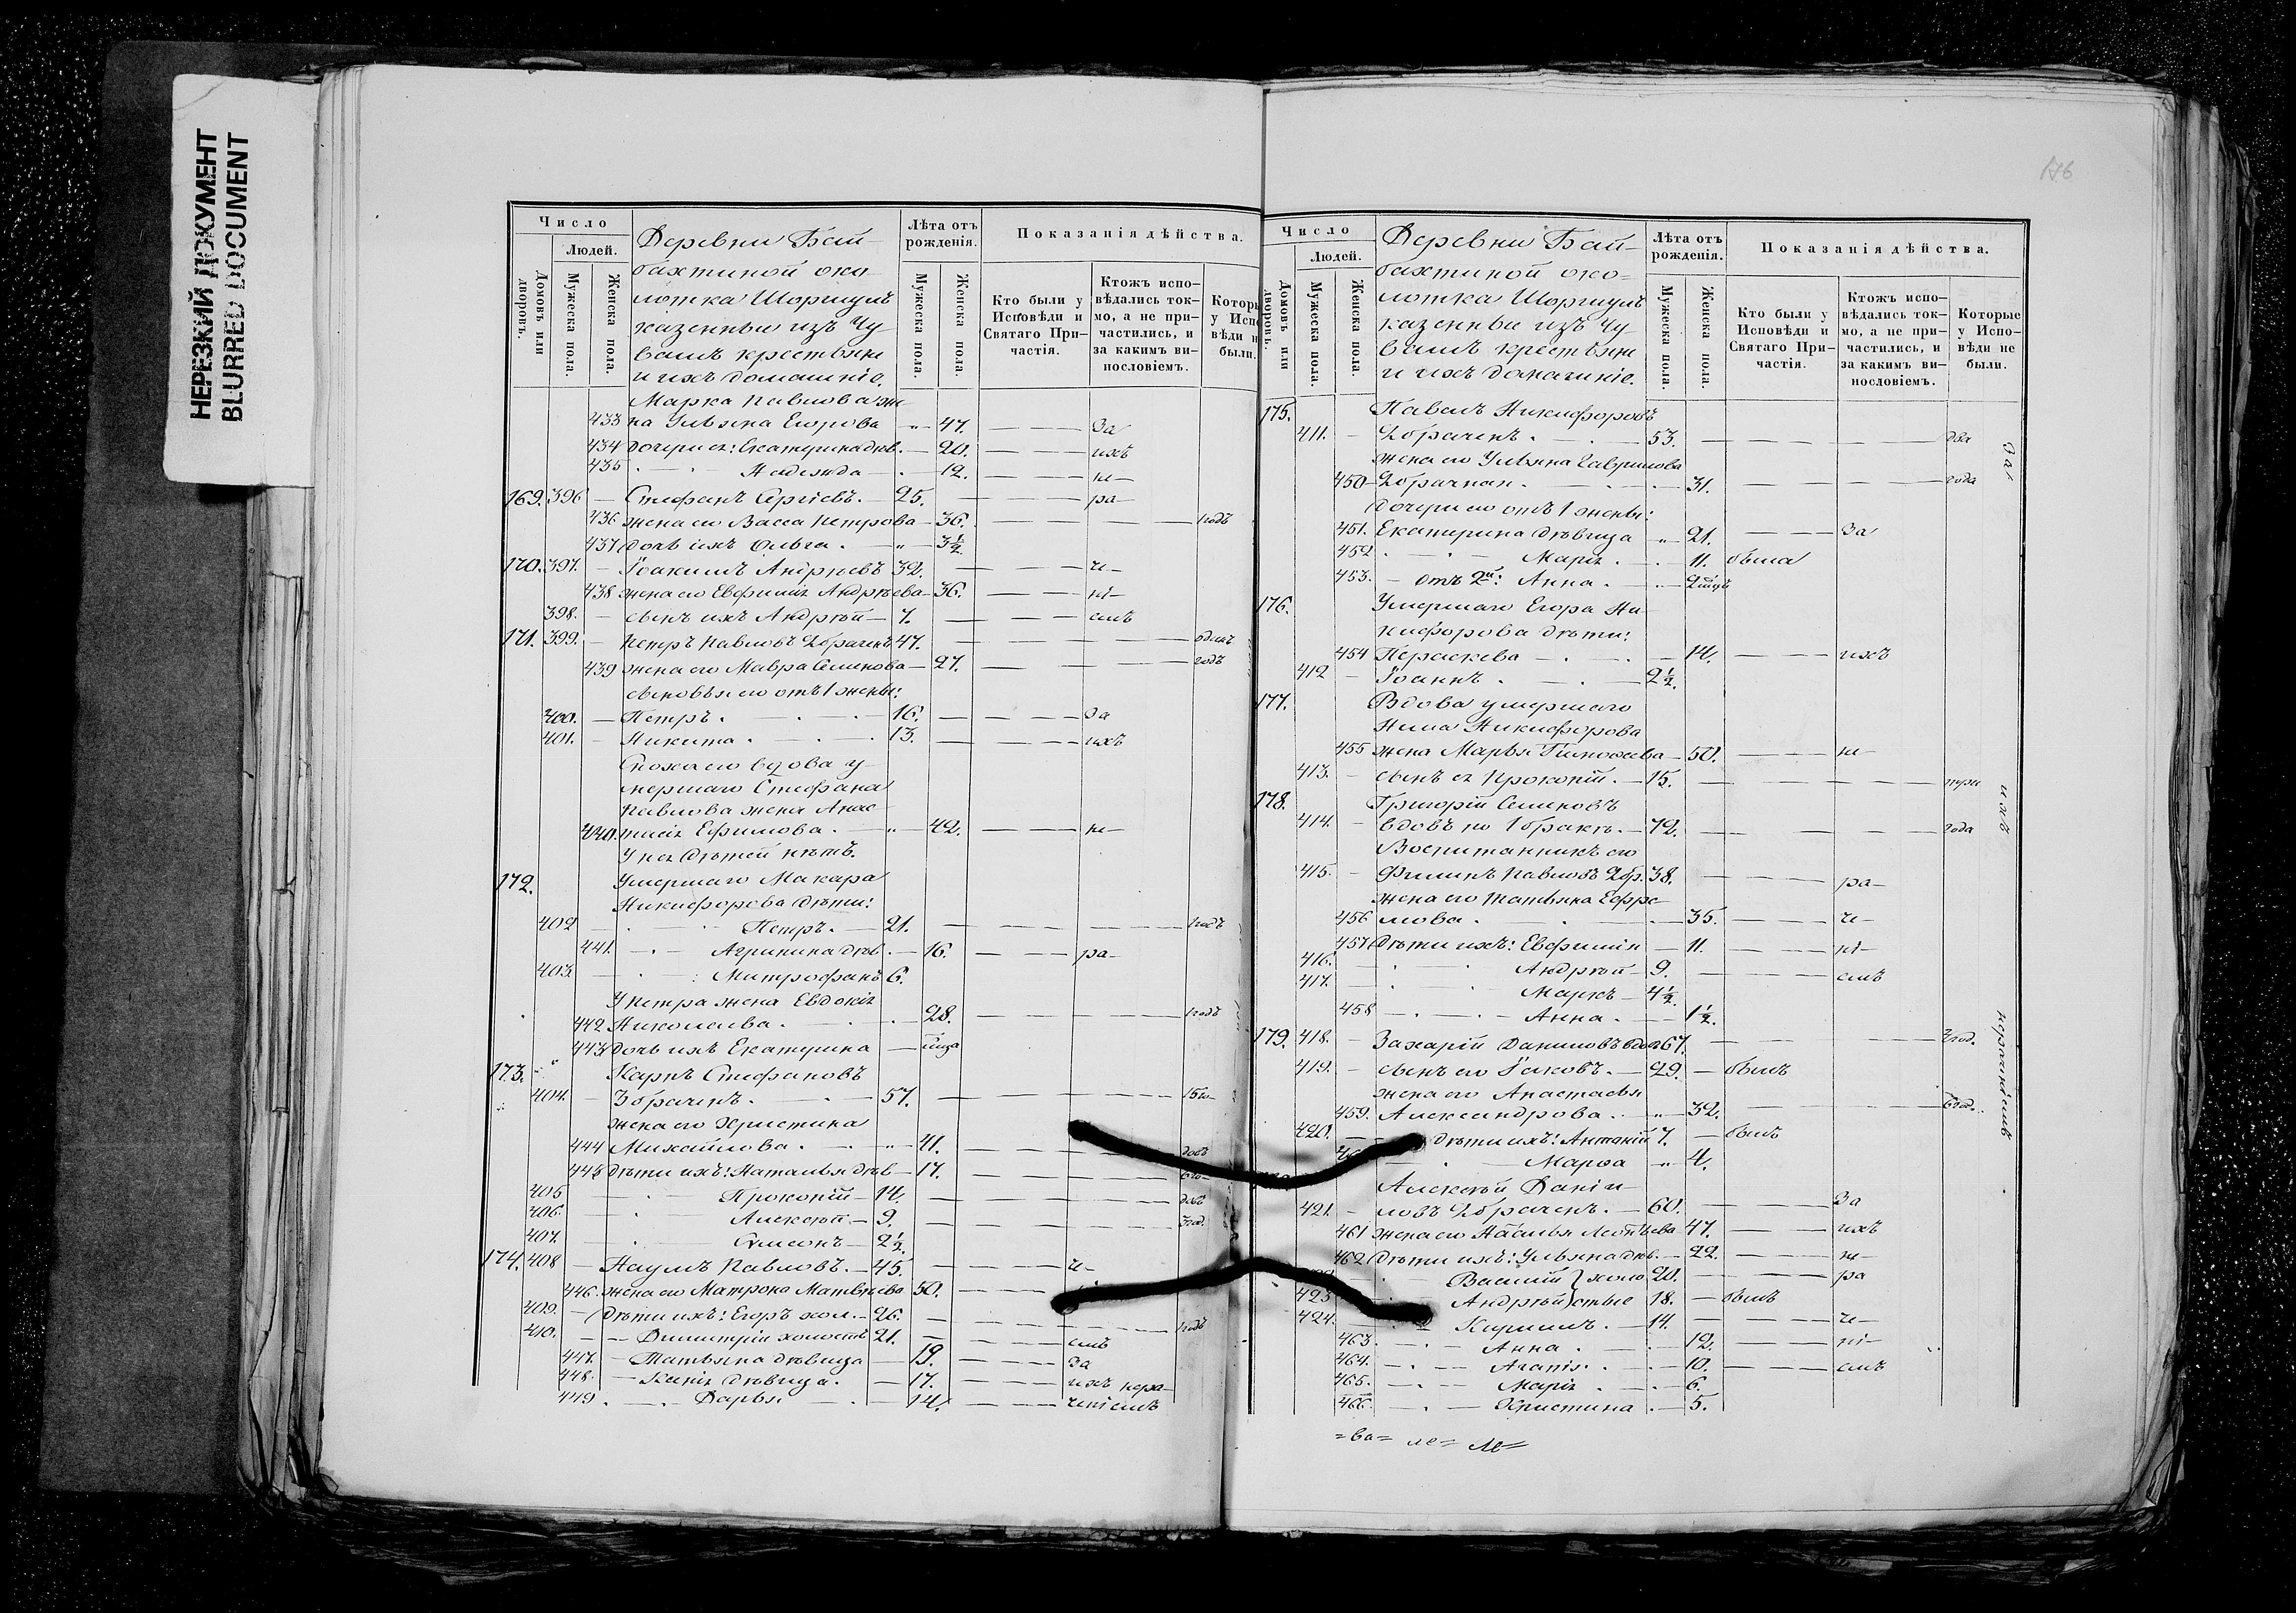 НЕРЕЗКИЙ ДОКУМЕНТ
BLURRED DOCUMENT
Число
Людей.
Домовъ или дворовъ.
Мужеска пола.
Женска пола.
Деревни Бай-
бахтиной око-
лотка Шоркумъ
казенные изъ Чу
вашъ крестьяне
и ихъ домашніе.
Лѣта отъ рожденія.
Мужеска пола.
Женска пола.
Показанія дѣйства.
Кто были у Исповѣди и Святаго При-частія.
Ктожъ испо-вѣдались ток-мо, а не при-частились, и за какимъ ви-нословіемъ.
Марка Павлова же
433 на Ульяна Егорова 47. За
434 дочери ея: Екатерина дѣв. 20. ихъ
435 Надежда 12. не-
169. 396 Стефанъ Сергіевъ. 25. ра-
436 жена его Васса Петрова 36. годъ
437 дочь ихъ Ольга. 3½
170. 397. Іоакимъ Андреевъ 32. че-
438 жена его Евфимія Андрѣева 36. ні-
398. сынъ ихъ Андрей 7. емъ
171. 399. Петръ Павловъ 47. одинъ
439 жена его Мавра Семенова 27. годъ
сыновья его отъ 1 жены:
400. Петръ. 16. За
401. Никита. 13. ихъ
Сноха его вдова у-
мершаго Стефана
Павлова жена Анас-
440. тасія Ефимова. 42. не-
У нея дѣтей нѣтъ.
172. Умершаго Макара
Никифорова дѣти:
402 Петръ. 21. годъ
441. Агрипина дѣв. 16. ра-
403. Митрофанъ 6.
У Петра жена Евдокія
442 Николаева. 28. годъ
443 дочь ихъ Екатерина
173. Карпъ Стефановъ
404. 57.
жена его Христина
444 Михайлова. 41.
445 дѣти ихъ: Наталья дѣв 17.
405 Прокопій 14.
406. Алексѣй 9. 3год.
407. Симеонъ 2½
174. 408 Наумъ Павловъ. 45. че-
446. жена его Матрона Матвѣева 50.
409. дѣти ихъ: Егоръ хол. 26. годъ
410. Димитрій холостъ 21. емъ
447. Татьяна дѣвица 19. За
448. Ксенія дѣвица. 17. ихъ нера-
449. Дарья 14. ченіемъ
176
Число
Людей.
Домовъ или дворовъ.
Мужеска пола.
Женска пола.
Деревни Бай-
бахтиной око-
лотка Шоркумъ
казенные изъ Чу
вашъ крестьяне
и ихъ домашніе.
Лѣта отъ рожденія.
Мужеска пола.
Женска пола.
Показанія дѣйства.
Кто были у Исповѣди и Святаго При-частія.
Ктожъ испо-вѣдались ток-мо, а не при-частились, и за какимъ ви-нословіемъ.
Которые у Испо-вѣди не были.
175. Павелъ Никифоровъ
411. 53. два
жена его Ульяна Гаврилова
450 31. года
дочери его отъ 1 жены:
451. Екатерина дѣвица 21. За
452 Марія 11. была
453. отъ 2й: Анна.
176. Умершаго Егора Ни-
кифорова дѣти:
454 Пераскева 14. ихъ
412 Іоаннъ. 2½.
177. Вдова умершаго
Никифорова
455 жена Марья Тимофеева 50. не-
413. сынъ ея Прокопій. 15. три
178. Григорій Семеновъ
414. вдовъ по 1 бракѣ. 72. года
Воспитанникъ его
415. Филипъ Павловъ 38. ра-
жена его Татьяна Ефре-
456 мова. 35. че-
457 дѣти ихъ: Евфимія 11. ні-
416. Андрей 9. емъ
417. Маркъ 4½
458 Анна. 1½.
179. 418. Захарій Даниловъ вдов 67. 2год.
419. сынъ его Іаковъ. 29. былъ
жена его Анастасья
459. Александрова. 32. 6год.
420. дѣти ихъ: Антоній 7. былъ
Марѳа 4.
Алексѣй Дани-
421. ловъ 60. За
461 жена его Наталья Леонтьева 47. ихъ
462 дѣти ихъ: Ульяна дѣв. 22. не-
Василій } холо 20. ра
423 Андрей } стые 18. былъ
424. Кирилъ. 14. че-
463. Анна 12. ні-
464. Агапія. 10. емъ
465. Марія 6.
466. Христина 5.
За
ихъ
нераченіемъ
=ва= ле= ле=